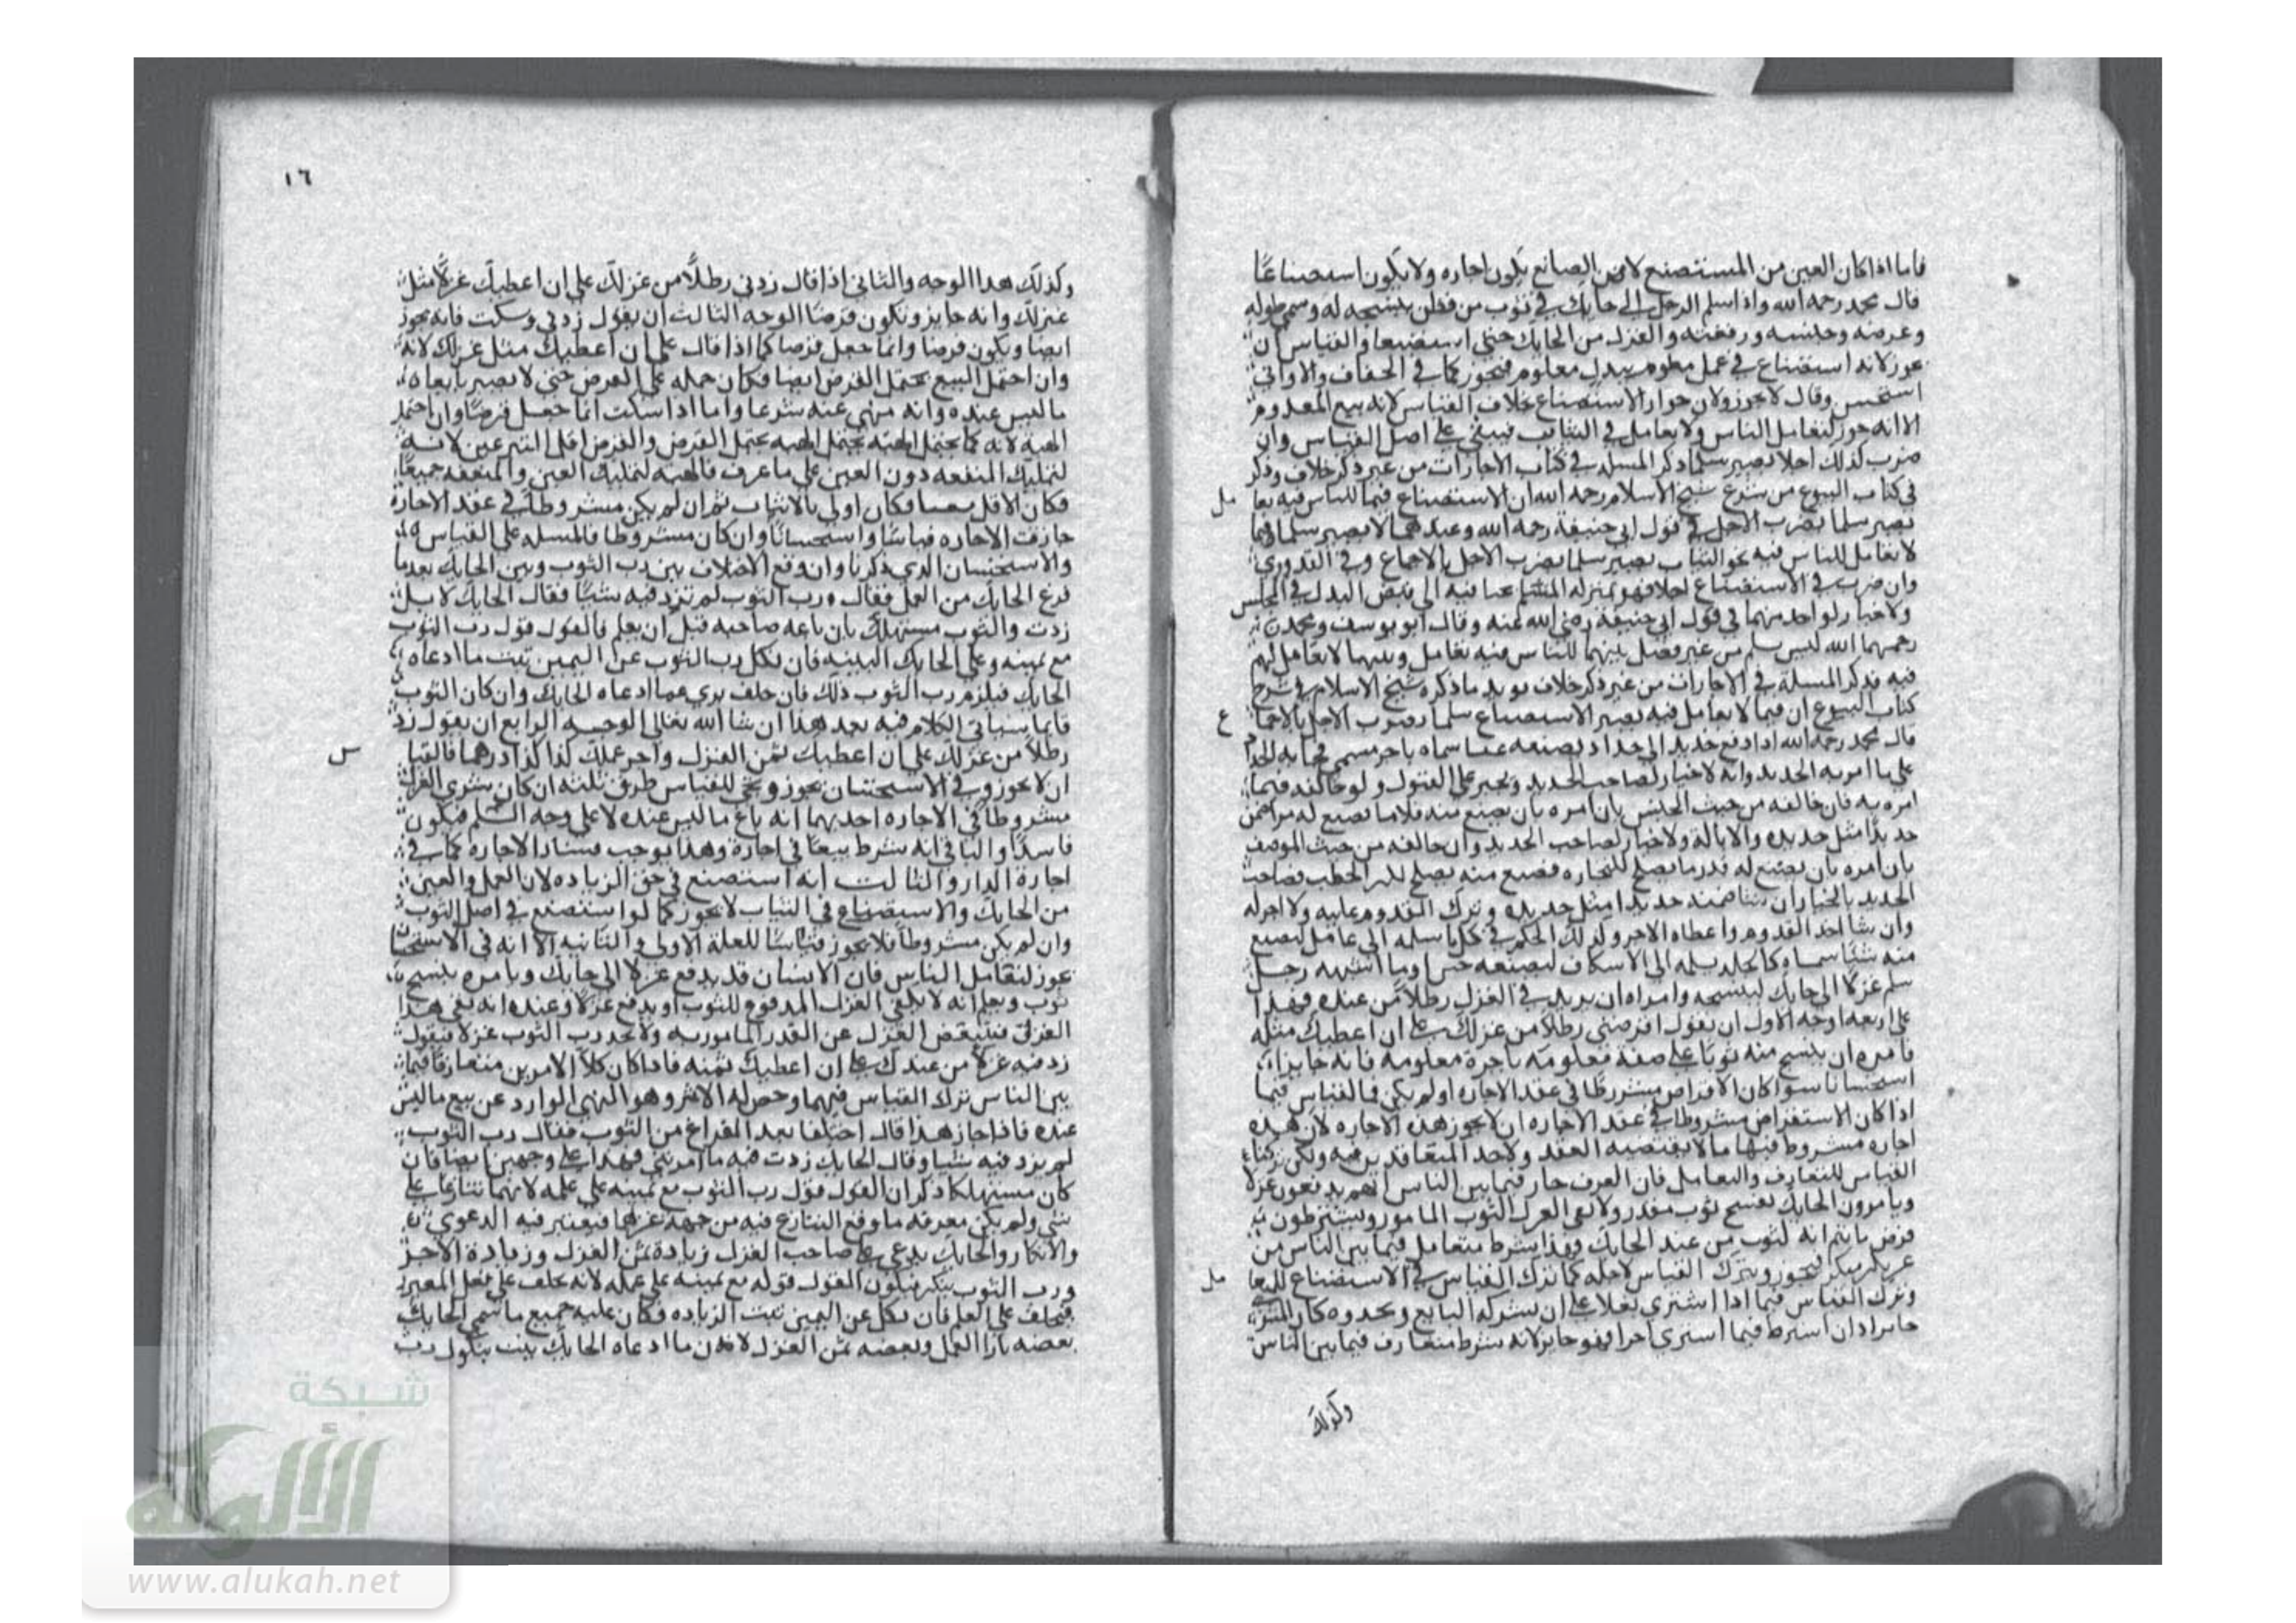 فاما اذا كان العين من المستصنع لا من الصانع يكون اجاره ولا يكون استصناعًا
قال محمد رحمه الله واذا اسلم الرجل الى حايك في ثوب من قطن ينسجه له وسمى طوله
وعرضه وجنسه ورقعته والغزل من الحايك حتى استصنعا والقياس ان
يجوز لانه استصناع في عمل معلوم ببدل معلوم فيجوز كما في الخفاف والاواني
استحسن وقال لا يجوز ولان جواز الاستصناع بخلاف القياس لانه بيع المعدوم
الا انه جوز لتعامل الناس ولا تعامل في الثياب فيبقى على اصل القياس وان
ضرب لذلك اجلا يصير سلما ذكر المسله في كتاب الاجارات من غير ذكر خلاف وذكر
في كتاب البيوع من شرح شيخ الاسلام رحمه الله ان الاستصناع فيما للناس فيه تعا
مل
يصير سلما بضرب الاجل في قول ابي حنيفة رحمه الله وعندهما لا يصير سلما وفيما
لا تعامل للناس فيه نحو الثياب يصير سلما بضرب الاجل بالاجماع وفي القدوري
وان ضرب في الاستصناع اجلا فهو بمنزله السلم يحتاج فيه الى قبض البدل في المجلس
ولا خيار لواحد منهما في قول ابي حنيفة رضي الله عنه وقال ابو يوسف ومحمد
رحمهما الله ليس سلم من غير فصل بينهما للناس فيه تعامل وبينهما لا تعامل لهم
فيه فذكر المسلة في الاجارات من غير ذكر خلاف يويد ما ذكره شيخ الاسلام في شرح
كتاب البيوع ان فيما لا تعامل فيه يصير الاستصناع سلما بضرب الاجل بالاجما
ع
قال محمد رحمه الله اذا دفع حديدا الى حداد يصنعه عينا سماه باجر مسمى فجا به الحداد
على ما امر به الحديد وانه لا خيار لصاحب الحديد ويجبر على القبول ولو خالفه فيما
امره به فان خالفه من حيث الجنس بان امره بان يصنع منه قدوما فصنع له مرا ضمن
حديدًا مثل حديده والاناله ولا خيار لصاحب الحديد وان خالفه من حيث الوصف
بان امره بان يصنع له قدوما يصلح للنجاره فصنع منه يصلح لكسر الحطب فصاحب
الحديد بالخيار ان شا ضمنه حديدا مثل حديده وترك القدوم عليه ولا اجر له
وان شا اخذ القدوم واعطاه الاجر وكذلك الحكم في كل ما سلمه الى عامل ليصنع
منه شيًا سماه كالجلد يسلمه الى الاسكاف ليصنعه خفا وما اشبهه رجل
سلم غزلًا الى حايك لينسجه وامراه ان يزيد في الغزل رطلًا من عنده فهذا
على اربعه اوجه الاول ان يقول اقرضني رطلا من غزلك على ان اعطيك مثله
فامره ان ينسج منه ثوبًا على صفة معلومه باجرة معلومة فانه جايز
استحسانا سوا كان الاقراض مشروطًا في عقد الاجاره او لم يكن فالقياس فيما
اذا كان الاستقراض مشروطا في عقد الاجاره ان لا يجوز هذه الاجاره لان هذه
اجاره مشروط فيها ما لا يقتضيه العقد ولاحد المتعاقدين فيه ولكن تركنا
القياس للتعارف والتعامل فان العرف جار فيما بين الناس انهم يدفعون غزلا
ويامرون الحايك بنسج ثوب مقدر ولا يفي الغزل الثوب المامور ويشترطون
قرض ما يتم انه ثوب من عند الحايك وهذا شرط متعامل فيما بين الناس من
غير نكير منكر فيجوز ويترك القياس لاجله كما ترك القياس في الاستصناع للتعا
مل
وترك القياس فيما اذا اشترى نعلا على ان يشركه البايع ويحذوه كان
جايزا وان اشترط فيما اشترى اجرا فهو جايز لانه شرط متعارف فيما بين الناس
وكذلك
١٦
وكذلك هذا الوجه والثاني اذا قال زدني رطلًا من غزلك على ان اعطيك غزلًا مثل
غزلك وانه جايز ويكون قرضًا الوجه الثالث ان يقول زدني وسكت فانه يجوز
ايضا ويكون قرضا وانما جعل قرضا كما اذا قال على ان اعطيك مثل غزلك لانه
وان احتمل البيع يحتمل القرض ايضا فكان حمله على القرض حتى لا يصير بايعا
ما ليس عنده وانه منهي عنه شرعا واما اذا سكت انما جعل قرضًا وان احتمل
الهبه لانه كما يحتمل الهبه يحتمل الهبه يحتمل القرض والقرض اقل التبرعين لانه
لتمليك المنفعه دون العين على ما عرف فالهبه لتمليك العين والمنفعه جميعًا
فكان الاقل فكان اولى بالاثبات ثم ان لم يكن مشروطًا في عقد الاجارة
جازت الاجاره قياسًا واستحسانًا وان كان مشروطا فالمسله على القياس
والاستحسان الذي ذكرنا وان وقع الاختلاف بين رب الثوب وبين الحايك بعد ما
فرغ الحايك من العمل فقال رب الثوب لم تزد فيه شيًا فقال الحايك لا بل
زدت والثوب مستهلك بان باعه صاحبه قبل ان يعلم فالقول قول رب الثوب
مع يمينه وعلى الحايك البينه فان نكل رب الثوب عن اليمين ثبت ما ادعاه
الحايك فيلزم رب الثوب ذلك فان حلف بري عما ادعاه الحايك وان كان الثوب
قايما سياتي الكلام فيه بعد هذا ان شا الله تعالى الوجه الرابع ان يقول زد
رطلًا من غزلك على ان اعطيك ثمن الغزل واجر عملك كذا كذا درهما فالقيا
س
ان لا يجوز وفي الاستحسان يجوز ويجي للقياس طرق ثلثه ان كان شرى الغزل
مشروطًا في الاجاره احديهما انه باع ما ليس عنده لا على وجه السلم فيكون
فاسدًا والثاني انه شرط بيعًا في اجارة وهذا يوجب فساد الاجاره كما في
اجارة الدار والثالث انه استصنع في حق الزياده لان العمل والعين
من الحايك والاستصناع في الثياب لا يجوز كما لو استصنع في اصل الثوب
وان لم يكن مشروطًا فلا يجوز قياسًا للعلة الاولى والثانيه الا انه في الاستحسان
يجوز لتعامل الناس فان الانسان قد يدفع غزلا الى حايك ويامره بنسج
ثوب ويعلم انه لا يكفي الغزل المدفوع للثوب او يدفع غزلًا وعنده انه يفي هذا
الغزل فينقص الغزل عن القدر المامور به ولا يجد رب الثوب غزلا فيقول
زد فيه غزلًا من عندك على ان اعطيك ثمنه فاذا كان كلا الامرين متعارفا فيما
بين الناس ترك القياس فيهما وخص له الاثر وهو النهي الوارد عن بيع ما ليس
عنده فاذا جاز هذا قال اختلفا بعد الفراغ من الثوب فقال رب الثوب
لم يزد فيه شيا وقال الحايك زدت فيه ما امرتني فهذا على وجهين ايضا فان
كان مستهلكا ذكر ان القول قول رب الثوب مع يمينه على علمه لانهما تنازعا على
شي ولم يكن معرفه ما وقع التنازع فيه من جهة غيرهما فيعتبر فيه الدعوى
والانكار والحايك يدعي على صاحب الغزل زيادة ثمن الغزل وزيادة الاجر
ورب الثوب ينكر فيكون القول قوله مع يمينه على علمه لانه يحلف على فعل الغير
فيحلف على العلم فان نكل عن اليمين ثبت الزياده فكان عليه جميع ما سمى الحايك
بعضه بازا العمل وبعضه ثمن الغزل لان ما ادعاه الحايك يثبت بنكول رب
شبكة
الألوكة
www.alukah.net